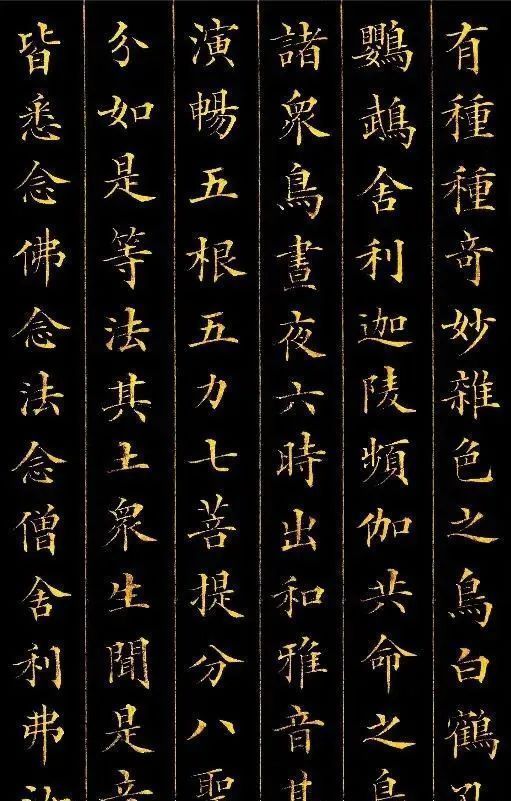 有種種奇妙雜色之鳥白鶴孔
鸚鵡舍利迦陵頻伽共命之鳥
諸衆鳥晝夜六時出和雅音其
演暢五根五力七菩提分八聖
分如是等法其土衆生聞是音
皆悉念佛念法念僧舍利弗汝